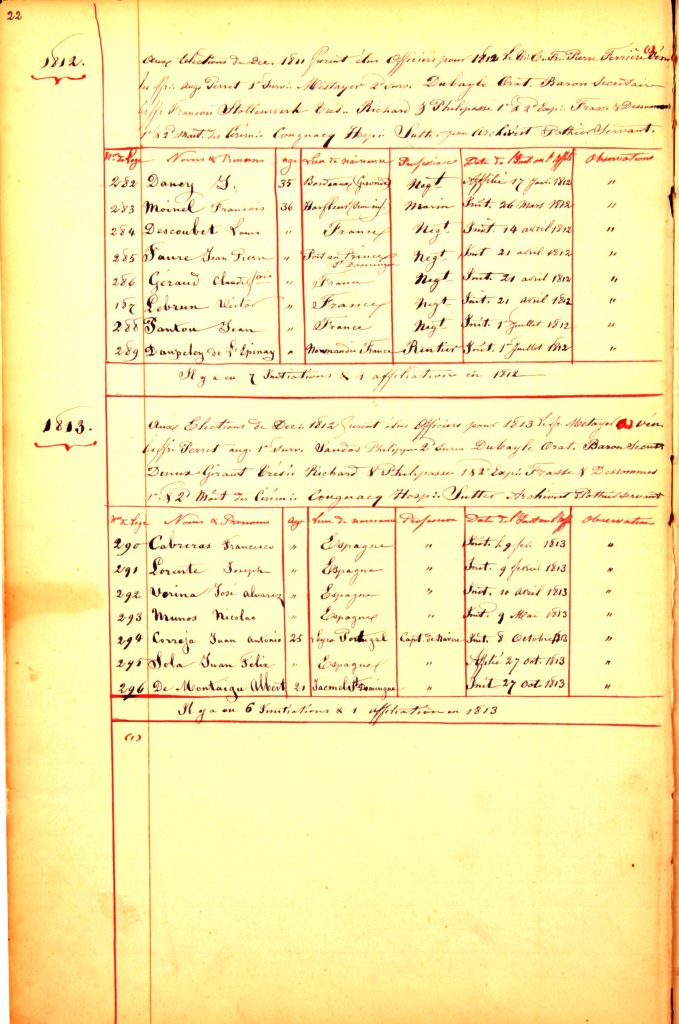 22
1812.
Aux Elections de Dec. 1811 furent élus Officiers pour 1812 Pierre Ferrière Vén
les ffr. Aug. Perret 1er Surv. Mestayer 2d Surv. Dubayle Orat. Baron Secrétaire
les ffr. Francois Hollenwerk Trés. Richard & Philipasse 1er & 2d Exp. Frasse & Dessommes
1er & 2d Mait. des Cérém. Cougnacq Hosp. Sutter pour Archivert Pothier Servant.
Nos de Lege Noms & Prenoms age Lieu de naissance Profession Date de l'Init ou l'Affil. Observations
282 Danoy J. 35 Bordeaux (Gironde) Negt Affilié 17 Janv. 1812 "
283 Moinel Francois 36 Harfleur Marin Init. 26 Mars 1812 "
284 Descoubet Louis " France Negt. Init. 14 avril 1812 "
285 Faure Jean Pierre " Port au Prince St Domingue Negt Init 21 avril 1812 "
286 Géraud Claude " France Negt Init. 21 avril 1812 "
187 Lebrun Victor " France Negt Init. 21 avril 1812 "
288 Tantou Jean " France Negt Init. 1er Juillet 1812 "
289 Daupeloy de L'Epinay " Normandie France Rentier Init. 1er Juillet 1812 "
Il y a eu 7 Initiations & 1 affiliation en 1812
1813.
Aux Elections de Dec. 1812 furent élus Officiers pour 1813 le f. Metayer vén
les ffr. Perret aug. 1er Surv. Sandos Philippe 2d Surv. Dubayle Orat. Baron Secret.
Denux Girant Trés. Richard & Philipasse 1 & 2d Exp. Frasse & Dessommes
1er & 2d Mait. des Cérém. Cougnacq Hosp. Sutter Archivert Pothier Servant
Nos de Lege Noms & Prenoms Age Lieu de naissance Profession Date de l'Init ou l'Aff. Observation
290 Cabreras Francisco " Espagne " Init. 9 fév. 1813 "
291 Lorente Joseph " Espagne " Init. 9 fevrier 1813 "
292 Verina José Alvarez " Espagne " Init. 10 Avril 1813 "
293 Munos Nicolas " Espagne " Init. 9 Mai 1813 "
294 Correja Juan Antonio 25 Portugal Capt. de Navire Init. 8 Octobre 1813 "
295 Sola Juan Felix " Espagne " Affilié 27 Oct. 1813 "
296 De Montaigu Albert 21 Jacmel St Domingue " Init 27 Oct. 1813 "
Il y a eu 6 Initiations & 1 affiliation en 1813
(1)